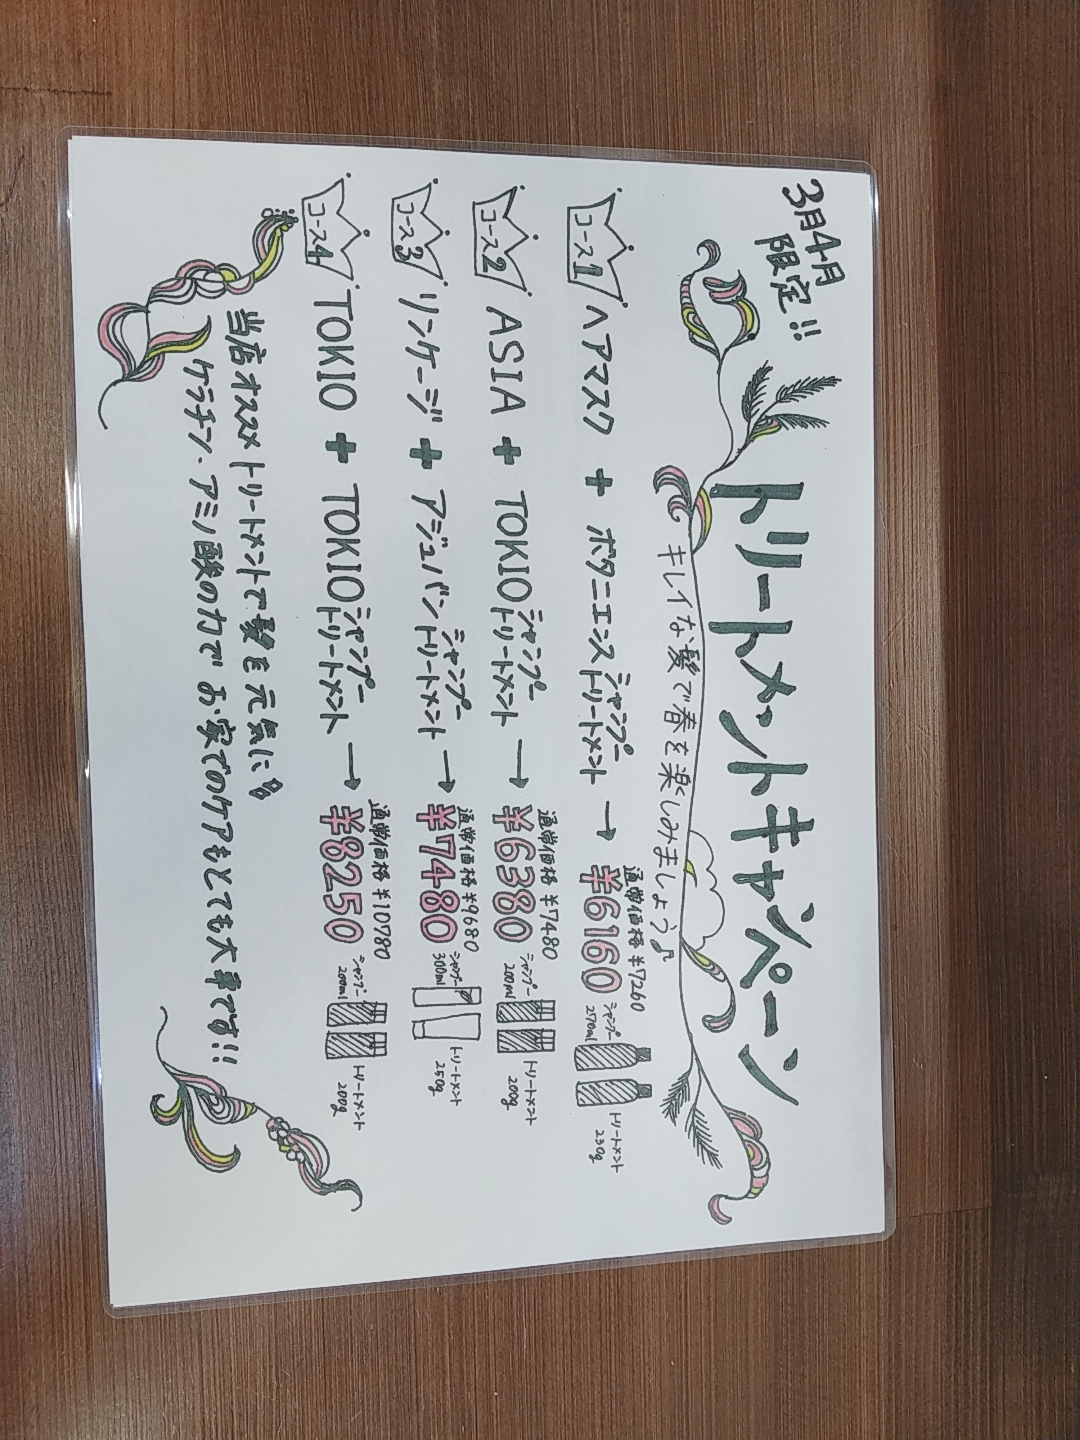 3月4月
限定!!
トリートメントキャンペーン
キレイな髪で春を楽しみましょう♪
コース1 ヘアマスク + ボタニエンス シャンプー トリートメント → 通常価格 ¥7260 ¥6160 シャンプー 270ml トリートメント 230g
コース2 ASIA + TOKIO シャンプー トリートメント → 通常価格 ¥7480 ¥6380 シャンプー 200ml トリートメント 200g
コース3 リンケージ + アジュバン シャンプー トリートメント → 通常価格 ¥9680 ¥7480 シャンプー 300ml トリートメント 250g
コース4 TOKIO + TOKIO シャンプー トリートメント → 通常価格 ¥10780 ¥8250 シャンプー 200ml トリートメント 200g
当店オススメトリートメントで髪を元気に
ケラチン・アミノ酸の力で お家でのケアもとても大事です!!